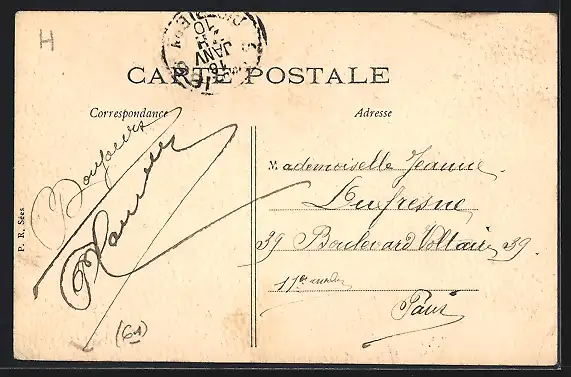 H
16
JANV
10
CARTE POSTALE
Correspondance
Adresse
Mademoiselle Jeanne
Dufresne
39 Boulevard Voltaire 39.
11e
Paris
P. R. Sées
(61)